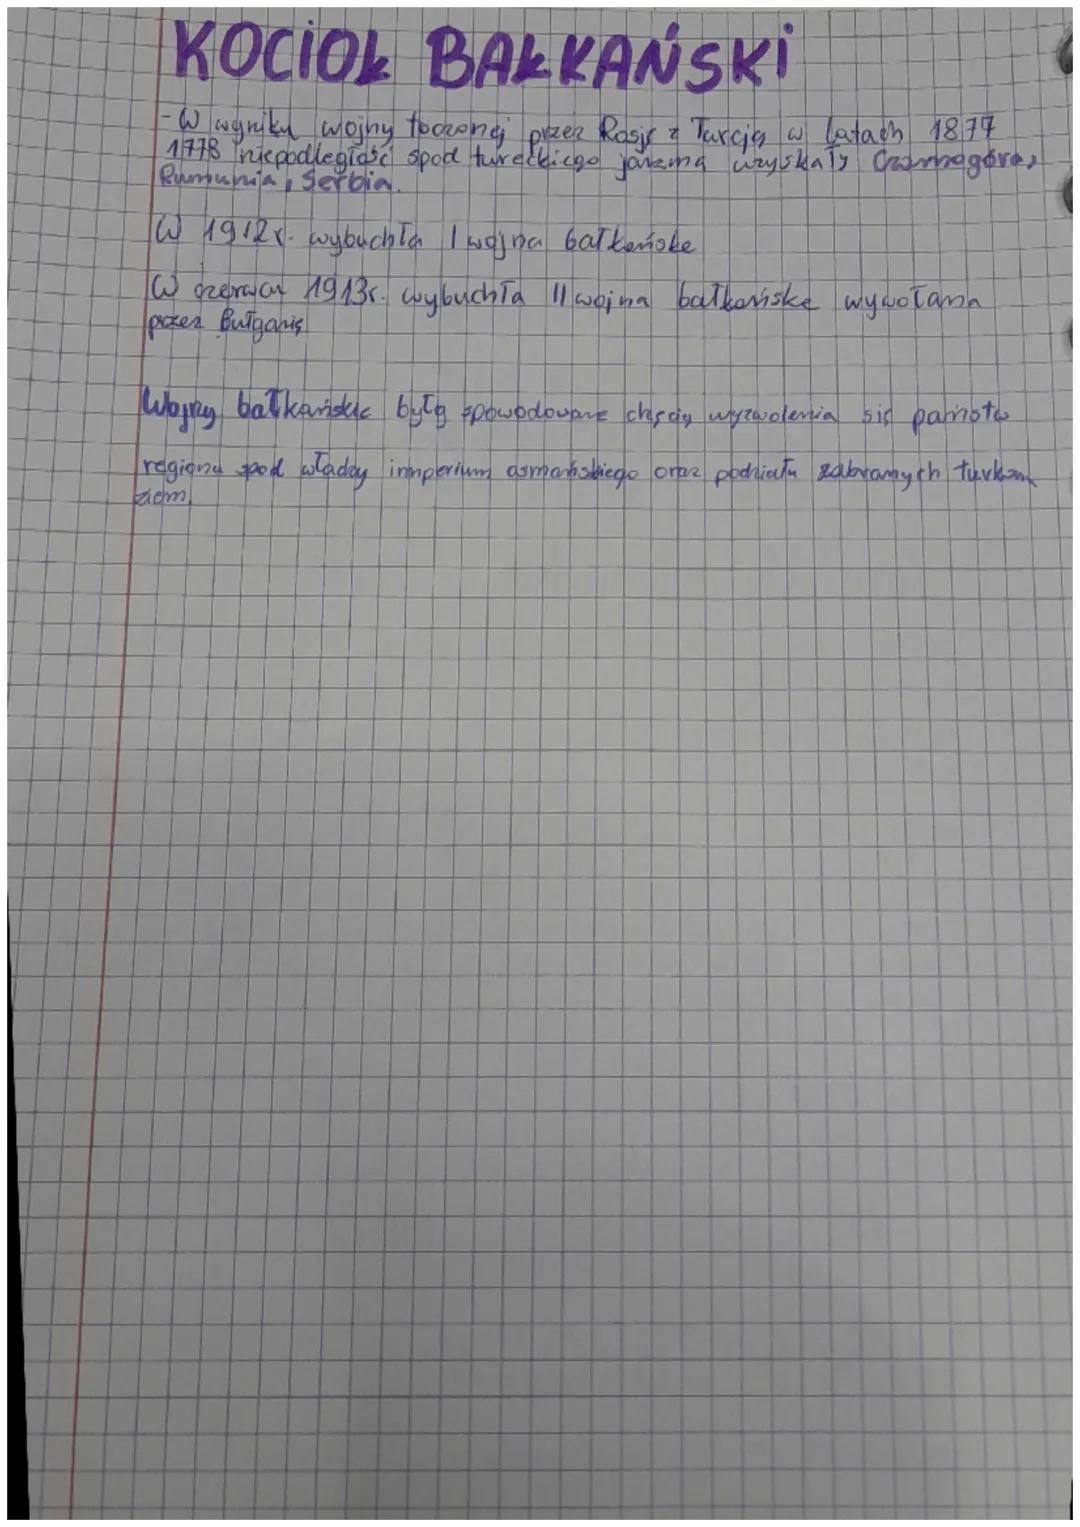 KOCIOŁ BAŁKAŃSKI
- W wyniku wojny toczonej przez Rosję z Turcją w latach 1877
1778 niepodległość spod tureckiego jarzma uzyskały Czarnogóra,
Rumunia, Serbia.
W 1912r. wybuchła I wojna bałkańska
W czerwcu 1913r. wybuchła II wojna bałkańska wywołana
przez Bułgarię
Wojny bałkańskie były spowodowane chęcią wyzwolenia się państw
regionu spod władzy inmperium asmańskiego oraz podziału zabranych turkom
ziem.